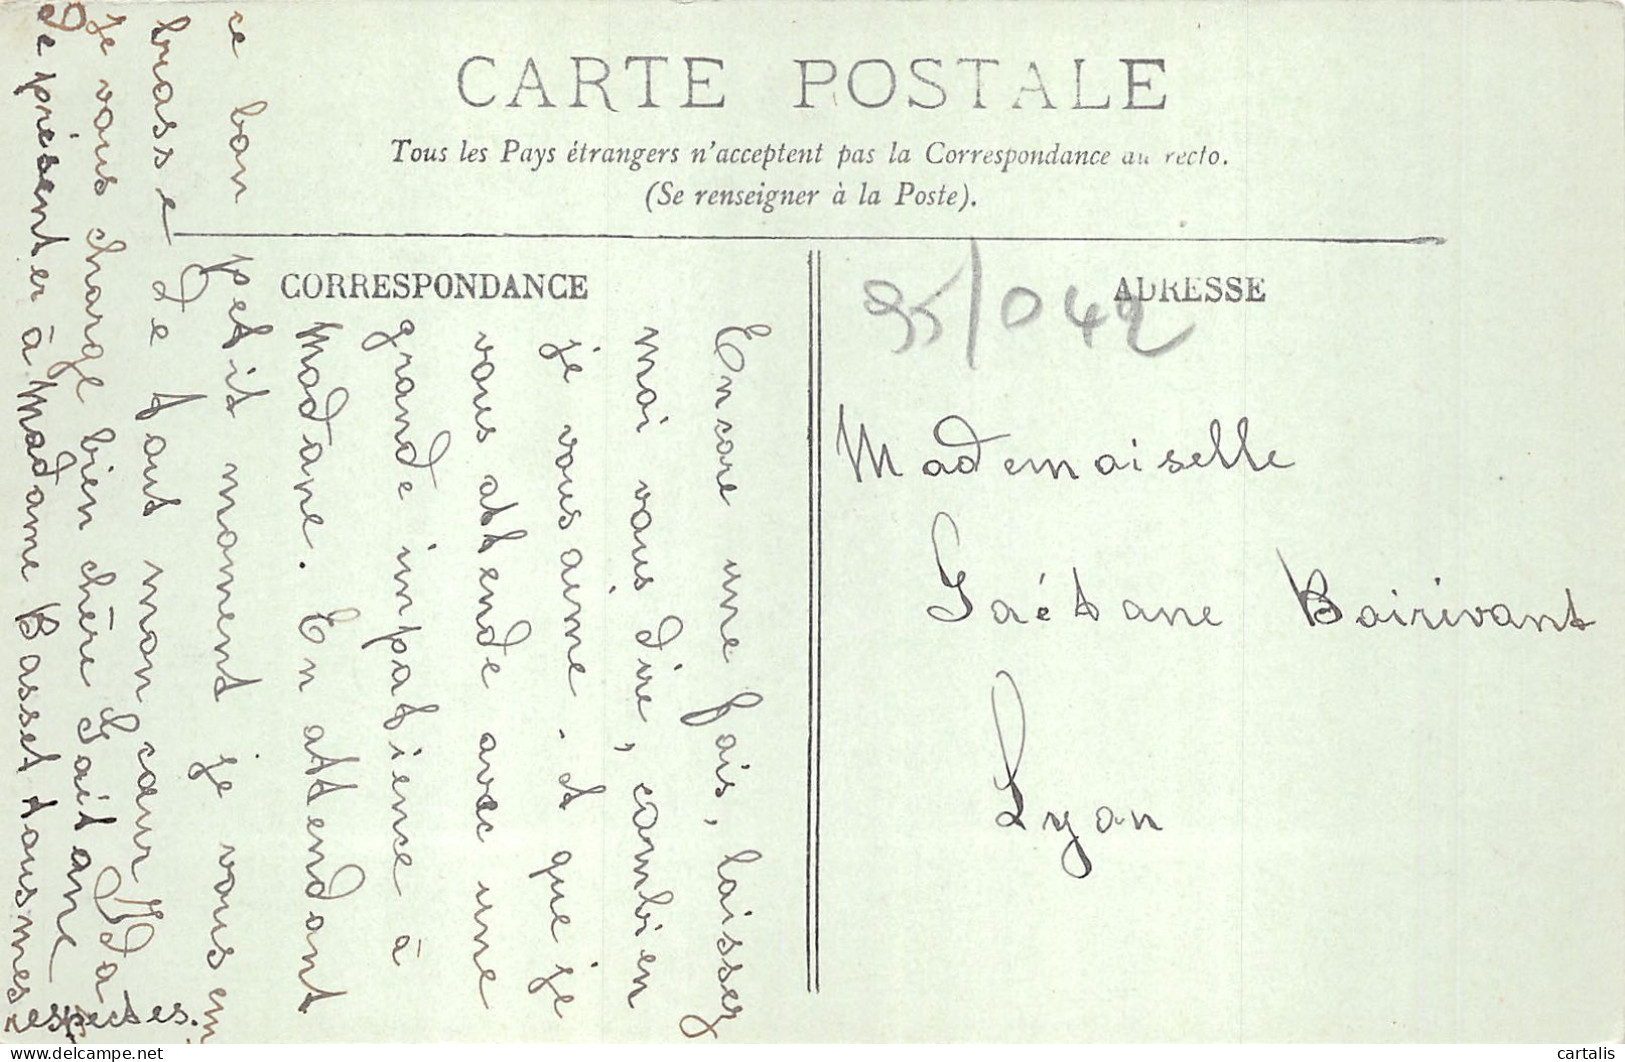 CARTE POSTALE
Tous les Pays étrangers n'acceptent pas la Correspondance au recto.
(Se renseigner à la Poste).
CORRESPONDANCE
ADRESSE
95/042
Encore une fois, laissez
moi vous dire, combien
je vous aime. et que je
vous attende avec une
grande impatience à
Modane. En attendant
ce bon petit moment je vous em
brasse de tout mon cœur
Ida
Je vous charge bien chère Gaitane
de présenter à Madame Basset tous mes
respectes.
Mademoiselle
Gaétane Boirivant
Lyon
cartalis